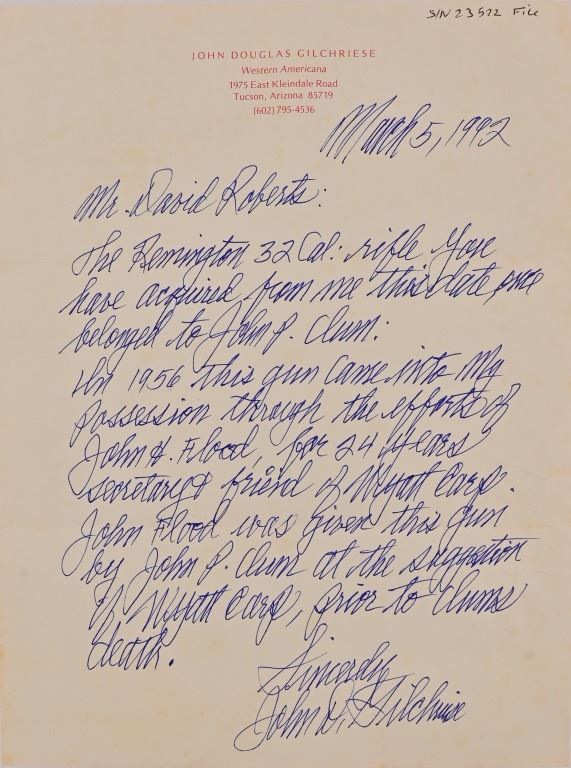 S/N 23572 File
JOHN DOUGLAS GILCHRIESE
Western Americana
1975 East Kleindale Road
Tucson, Arizona 85719
(602) 795-4536
March 5, 1992
Mr. David Roberts:
The Remington 32 Cal: rifle you
have acquired from me this date, once
belonged to John P. Clum:
In 1956 this gun came into my
possession through the efforts of
John H. Flood, for 24 years
secretary & friend of Wyatt Earp.
John Flood was given this gun
by John P. Clum at the sugestion
of Wyatt Earp, prior to Clums
death.
Sincerely
John D. Gilchriese